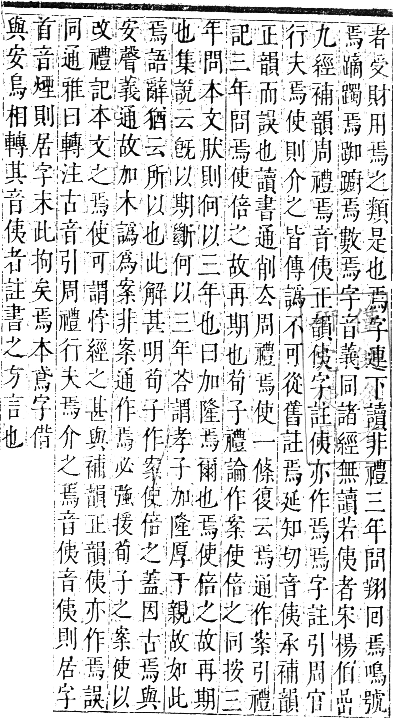 者受財用焉之類是也焉字連下讀非禮三年問翔回焉鳴號
焉蹢躅焉踟躕焉數焉字音義同諸經無讀若使者宋楊伯嵒
九經補韻周禮焉音使正韻使字註使亦作焉焉字註引周官
行夫焉使則介之皆傳譌不可從舊註焉延知切音使承補韻
正韻而誤也讀書通削去周禮焉使一條復云焉通作案引禮
記三年問焉使倍之故再期也荀子禮論作案使倍之同按三
年問本文肰則何以三年也曰加隆焉爾也焉使倍之故再期
也集說云旣以期斷何以三年答謂孝子加隆厚于親故如此
焉語辭猶云所以也此解甚明荀子作案使倍之蓋因古焉與
安聲義通故加木譌為案非案通作焉必強援荀子之案使以
改禮記本文之焉使可謂悖經之甚與補韻正韻使亦作焉誤
同通雅曰轉注古音引周禮行夫焉介之焉音使音使則居字
首音煙則居字末此拘矣焉本鳶字借
與安烏相轉其音使者註書之方言也